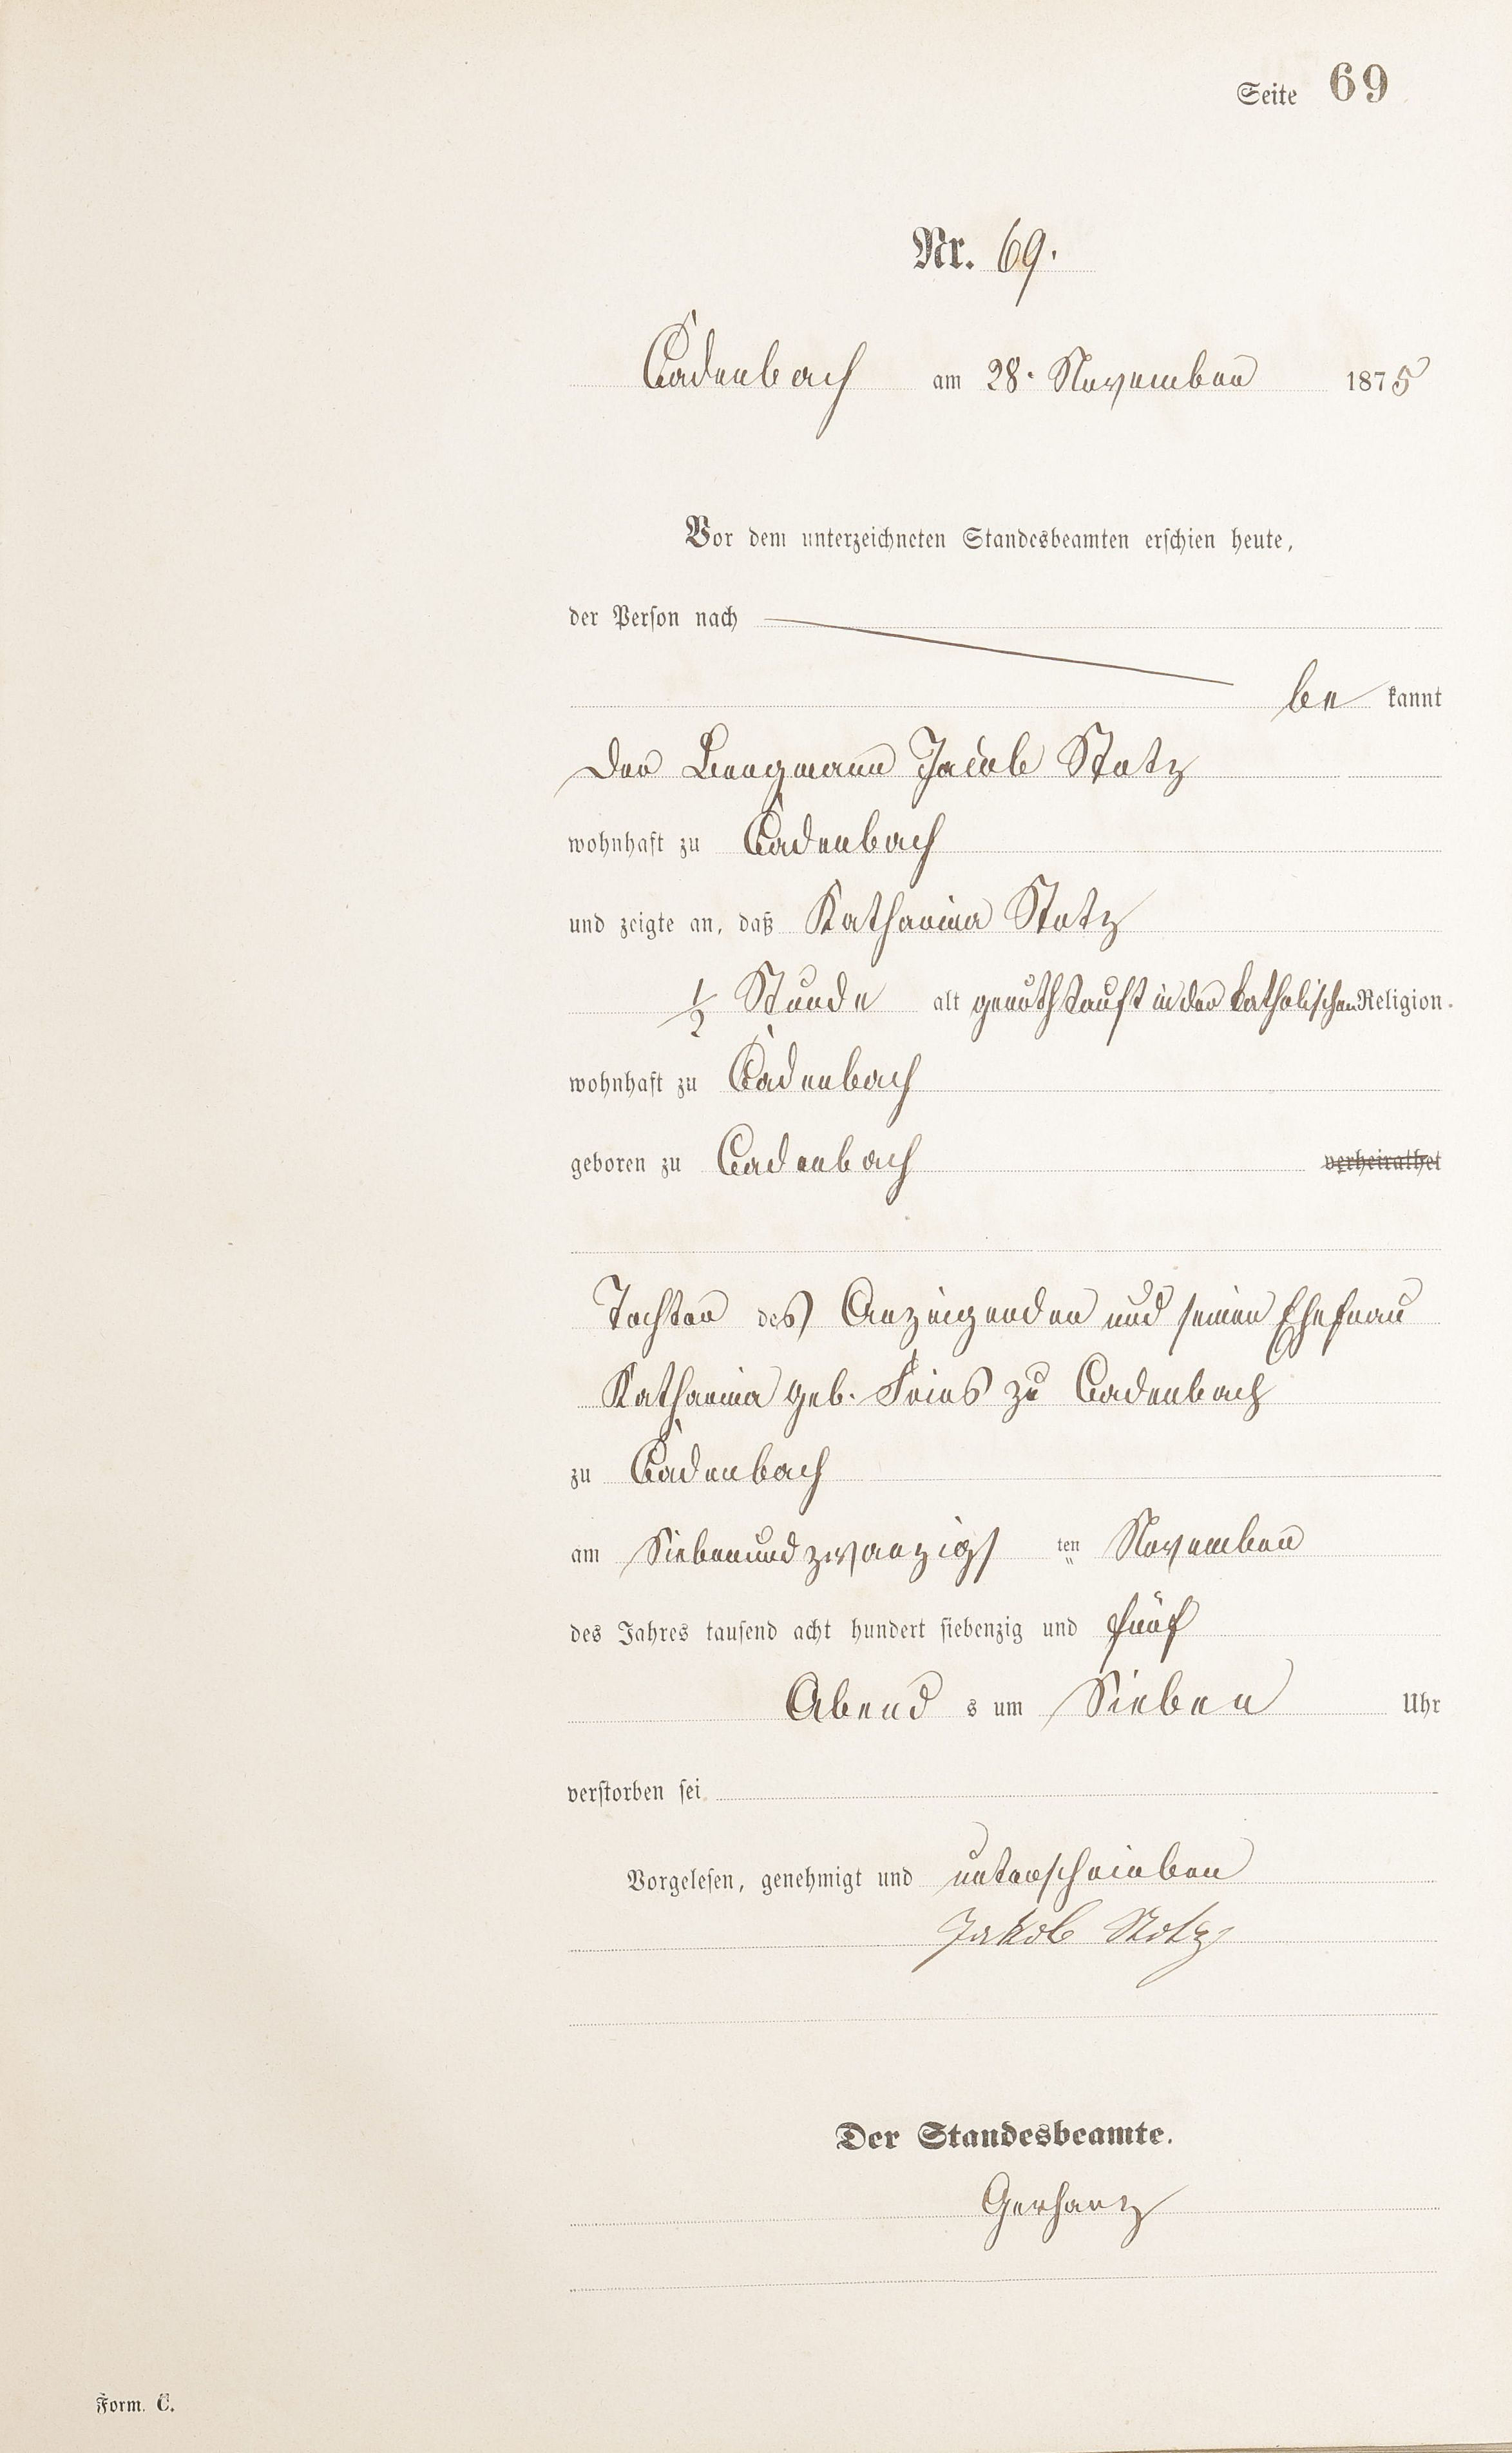 Seite 69
Nr. 69.
Cadenbach am 28. November 1875
Vor dem unterzeichneten Standesbeamten erschien heute,
der Person nach
be kannt
Der Bergmann Jacob Stotz
wohnhaft zu Cadenbach
und zeigte an, daß Katharina Stotz
1/2 Stunde alt genothtauft in der katholischen Religion.
wohnhaft zu Cadenbach
geboren zu Cadenbach verheirathet
Tochter des Anzeigenden und seiner Ehefrau
Katharina geb. Fries zu Cadenbach
zu Cadenbach
am Siebenundzwanzigs ten November
des Jahres tausend acht hundert siebenzig und fünf
Abend s um Sieben Uhr
verstorben sei
Vorgelesen, genehmigt und unterschrieben
Jakob Stotz
Der Standesbeamte.
Gerhartz
Form. C.